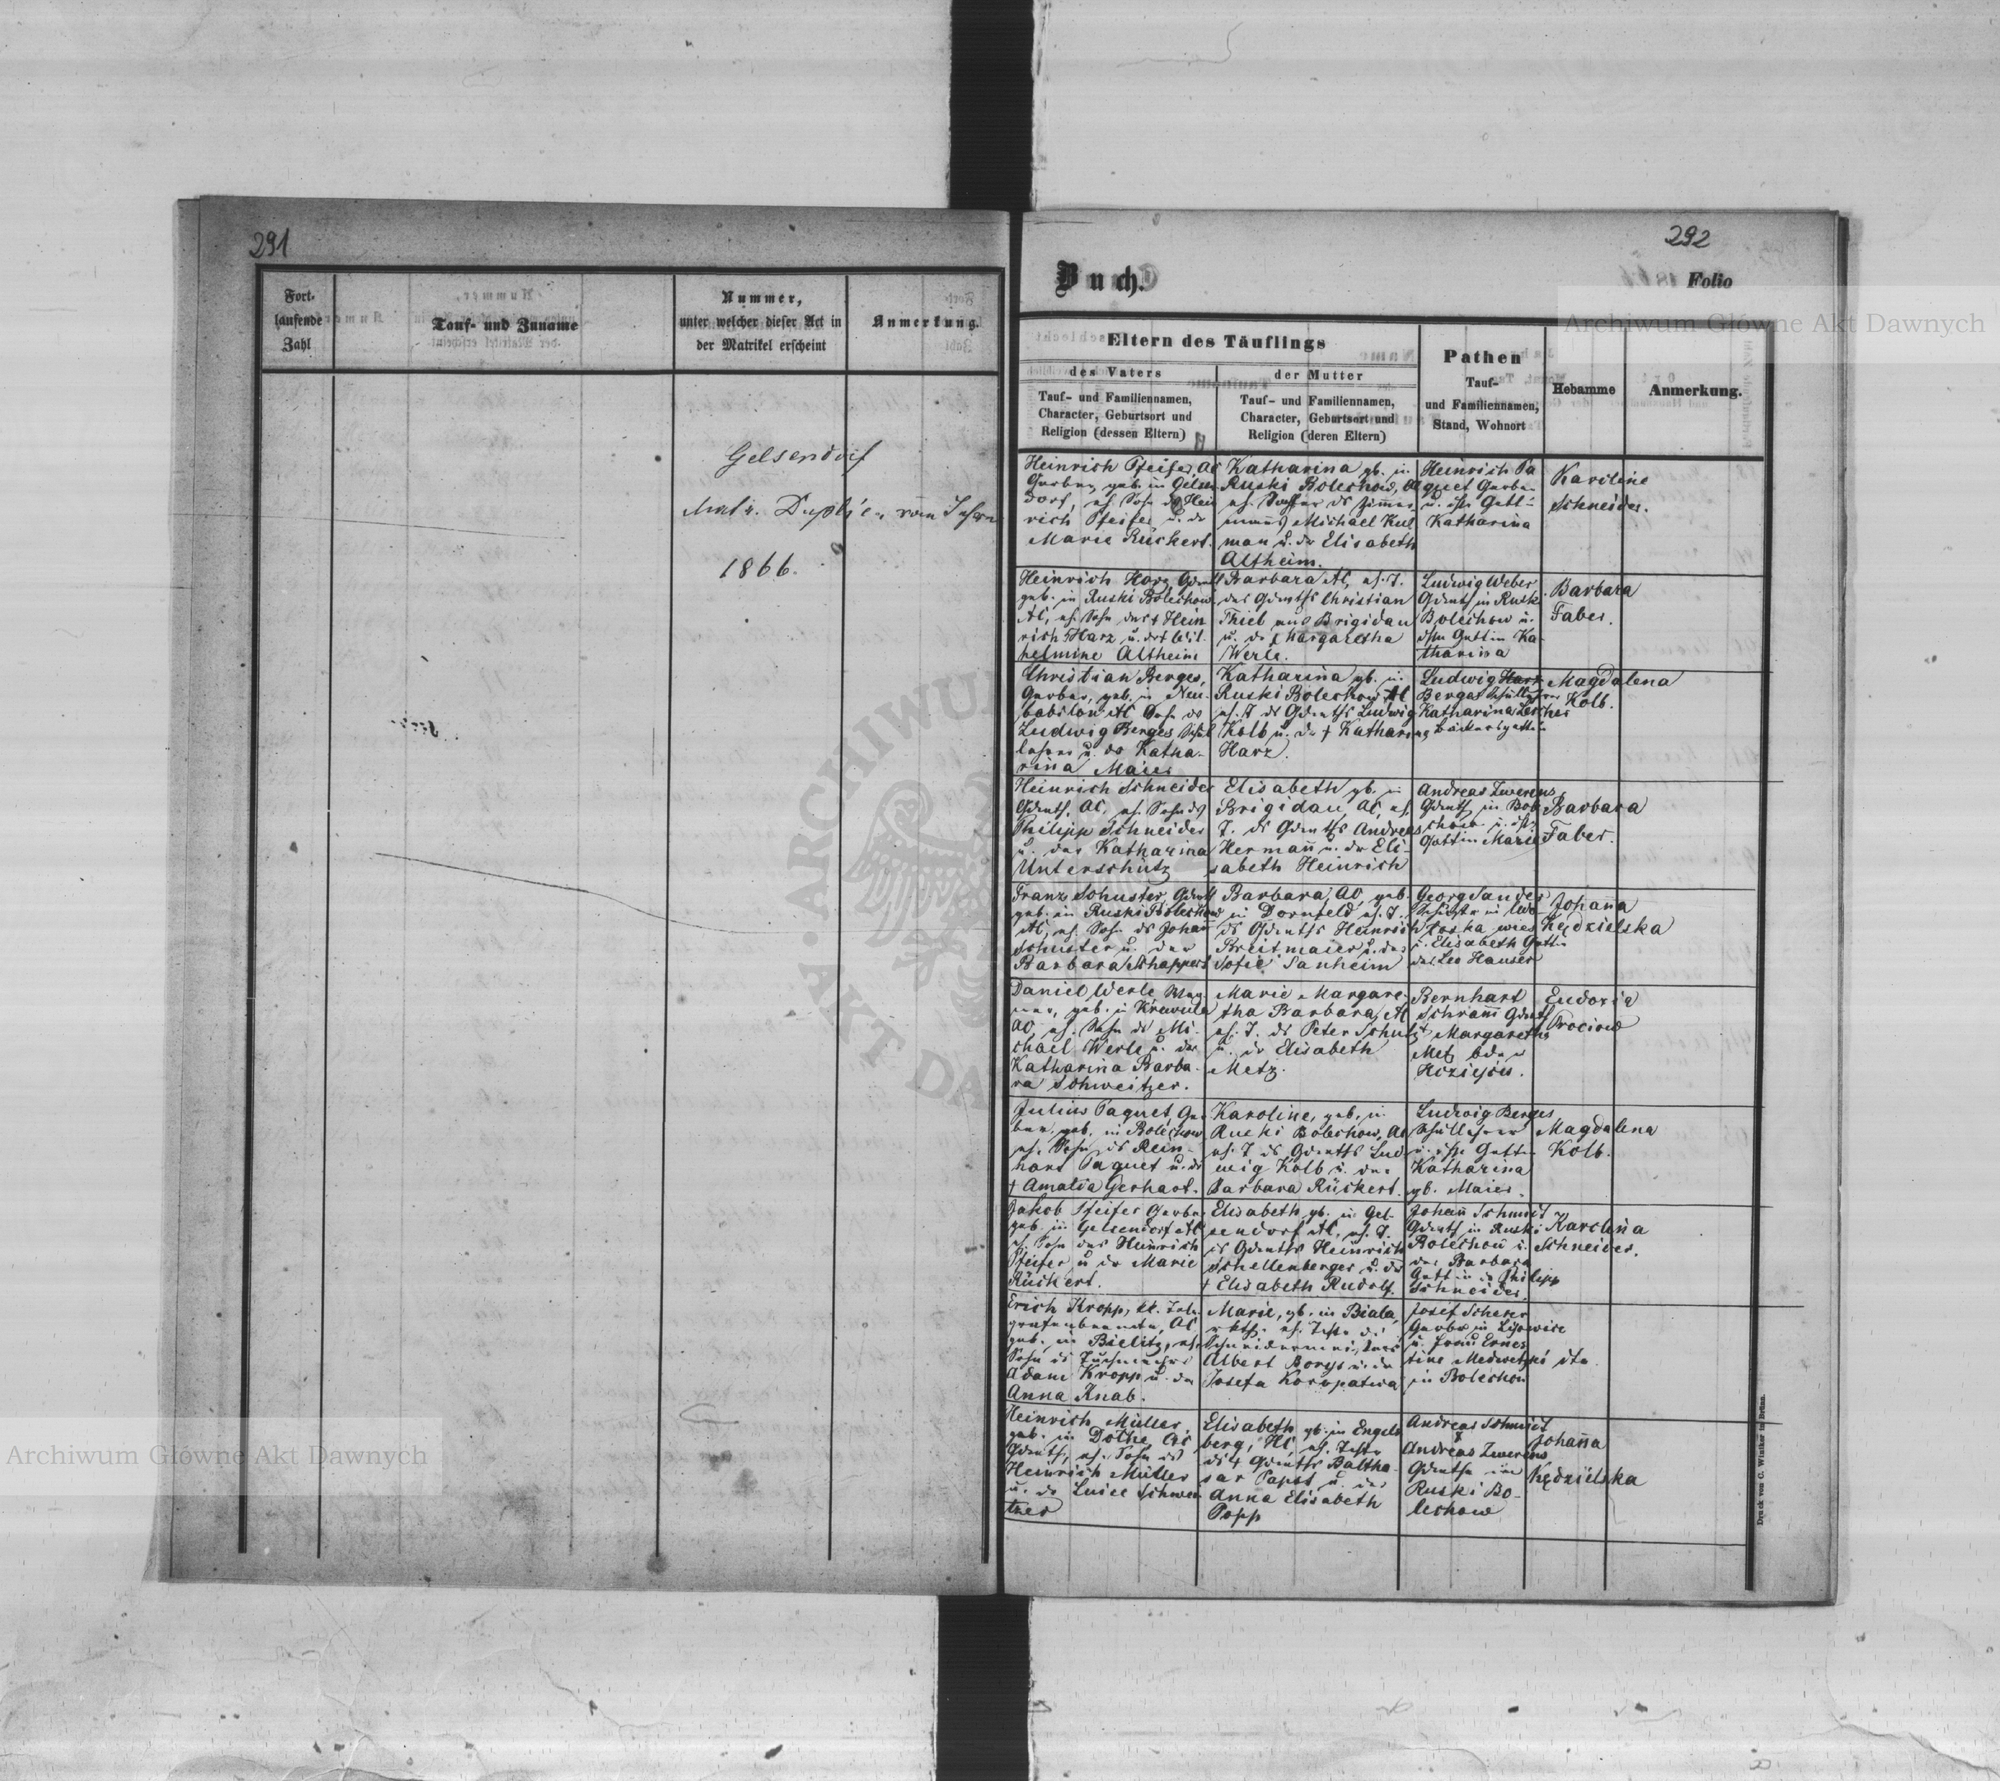 291
Fort-
laufende
Zahl
Tauf- und Zuname
Nummer,
unter welcher dieser Act in
der Matrikel erscheint
Anmerkung.
Gelsendorf
Matr. Duplic. vom Jahre
1866.
292
Buch.
Folio
Archiwum Główne Akt Dawnych
Eltern des Täuflings
des Vaters
Tauf- und Familiennamen,
Character, Geburtsort und
Religion (dessen Eltern)
der Mutter
Tauf- und Familiennamen,
Character, Geburtsort und
Religion (deren Eltern)
Pathen
Tauf-
und Familiennamen,
Stand, Wohnort
Hebamme
Anmerkung.
Heinrich Pfeifer, AC
Gerber, geb. in Gelsen
dorf, eh. Sohn ds Hein
rich Pfeifer u. dr
Marie Rückert.
Katharina gb. in
Ruski Bolechow, AC
eh. Tochter ds Zimmer
manns Michael Kul
man u. dr Elisabeth
Altheim.
Heinrich Pa
quet Gerber
u. Gattin
Katharina
Karoline
Schneider.
Heinrich Harz
geb. in Ruski Bolechow
AC, eh. Sohn des † Hein
rich Harz u. der Wil
helmine Altheim
Barbara AC, eh. T.
des Christian
Thiel aus Brigidau
u. dr Margaretha
Werle.
Ludwig Weber
in Ruski
Bolechow u.
Gattin Ka
tharina
Barbara
Faber.
Christian Berges,
Gerber, geb. in Neu
babilon AC Sohn ds
Ludwig Berges Schul
lehrer u. dr Katha-
rina Maier
Katharina gb. in
Ruski Bolechow AC
eh. T ds Ludwig
Kolb u. dr † Katharina
Harz.
Ludwig Harz
Berges Schullehrer
Katharina Lercher
Bäckersgattin
Magdalena
Kolb.
Heinrich Schneider
AC, eh. Sohn ds
Philipp Schneider
u. der Katharina
Unterschütz
Elisabeth gb. in
Brigidau, AC, eh.
T. ds Andreas
Hermann u. dr Eli-
sabeth Heinrich
Andreas Zwerens
in Bole
chow u.
Gattin Marie
Barbara
Faber.
Franz Schuster,
geb. in Ruski Bolechow
AC, eh. Sohn ds Johann
Schuster u. der
Barbara Schappert
Barbara, AC, geb.
in Dornfeld eh. T.
ds Heinrich
Breitmaier u. der
Sofie Sanheim
Georg Sander
in Wo-
loska wies
u. Elisabeth Gattin
des Leo Hauser
Johanna
Kędzielska
Daniel Werle Wag
ner, geb. in Krewula
AC, eh. Sohn ds Mi-
chael Werle u. der
Katharina Barba-
ra Schweitzer.
Marie Margare-
tha Barbara, AC
eh. T. ds Peter Schultz
u. dr Elisabeth
Metz.
Bernhart
Schramm
Margaretha
Metz
Eudoxia
Prociow
Julius Paquet, Ger
ber, geb. in Bolechow
eh. Sohn ds Rein-
hart Paquet u. dr
† Amalia Gerhart.
Karoline, geb. in
Ruski Bolechow, AC
eh. T ds Lud
wig Kolb u. der
Barbara Rückert.
Ludwig Berges
Schullehrer
u. Gattin
Katharina
gb. Maier.
Magdalena
Kolb.
Jakob Pfeifer Gerber
geb. in Gelsendorf AC
eh. Sohn des Heinrich
Pfeifer u dr Marie
Rückert.
Elisabeth gb. in Gel-
sendorf AC, eh. T.
ds Heinrich
Schellenberger u. dr
† Elisabeth Rudolf.
Johann Schmidt
in Ruski
Bolechow u.
der Barbara
Gattin ds Philipp
Schneider.
Karolina
Schneider.
Erich Kropp, kk. Tele
grafenbeamte, AC
geb. in Bielitz, eh.
Sohn ds Tuchmachers
Adam Kropp u. der
Anna Knab.
Marie, gb. in Biala,
eh. Tochter ds
Schneidermeisters
Albert Borys u. dr
Josefa Koropatwa
Josef Scherer
Gerber in Lisowice
u. Frau Ernes
tine Medwetzki
in Bolechow
Heinrich Müller
geb. in Dothe AC
eh. Sohn ds
Heinrich Müller
u. dr Luise Schwei
tzer
Elisabeth gb. in Engels
berg, HC, eh. Tochter
ds † Baltha-
sar Papst u. der
Anna Elisabeth
Popp
Andreas Schmidt
Andreas Zwerens
in
Ruski Bo-
lechow
Johanna
Kędzielska
Druck von C. Winiker in Brünn.
ARCHIWUM · AKT DA
Archiwum Główne Akt Dawnych